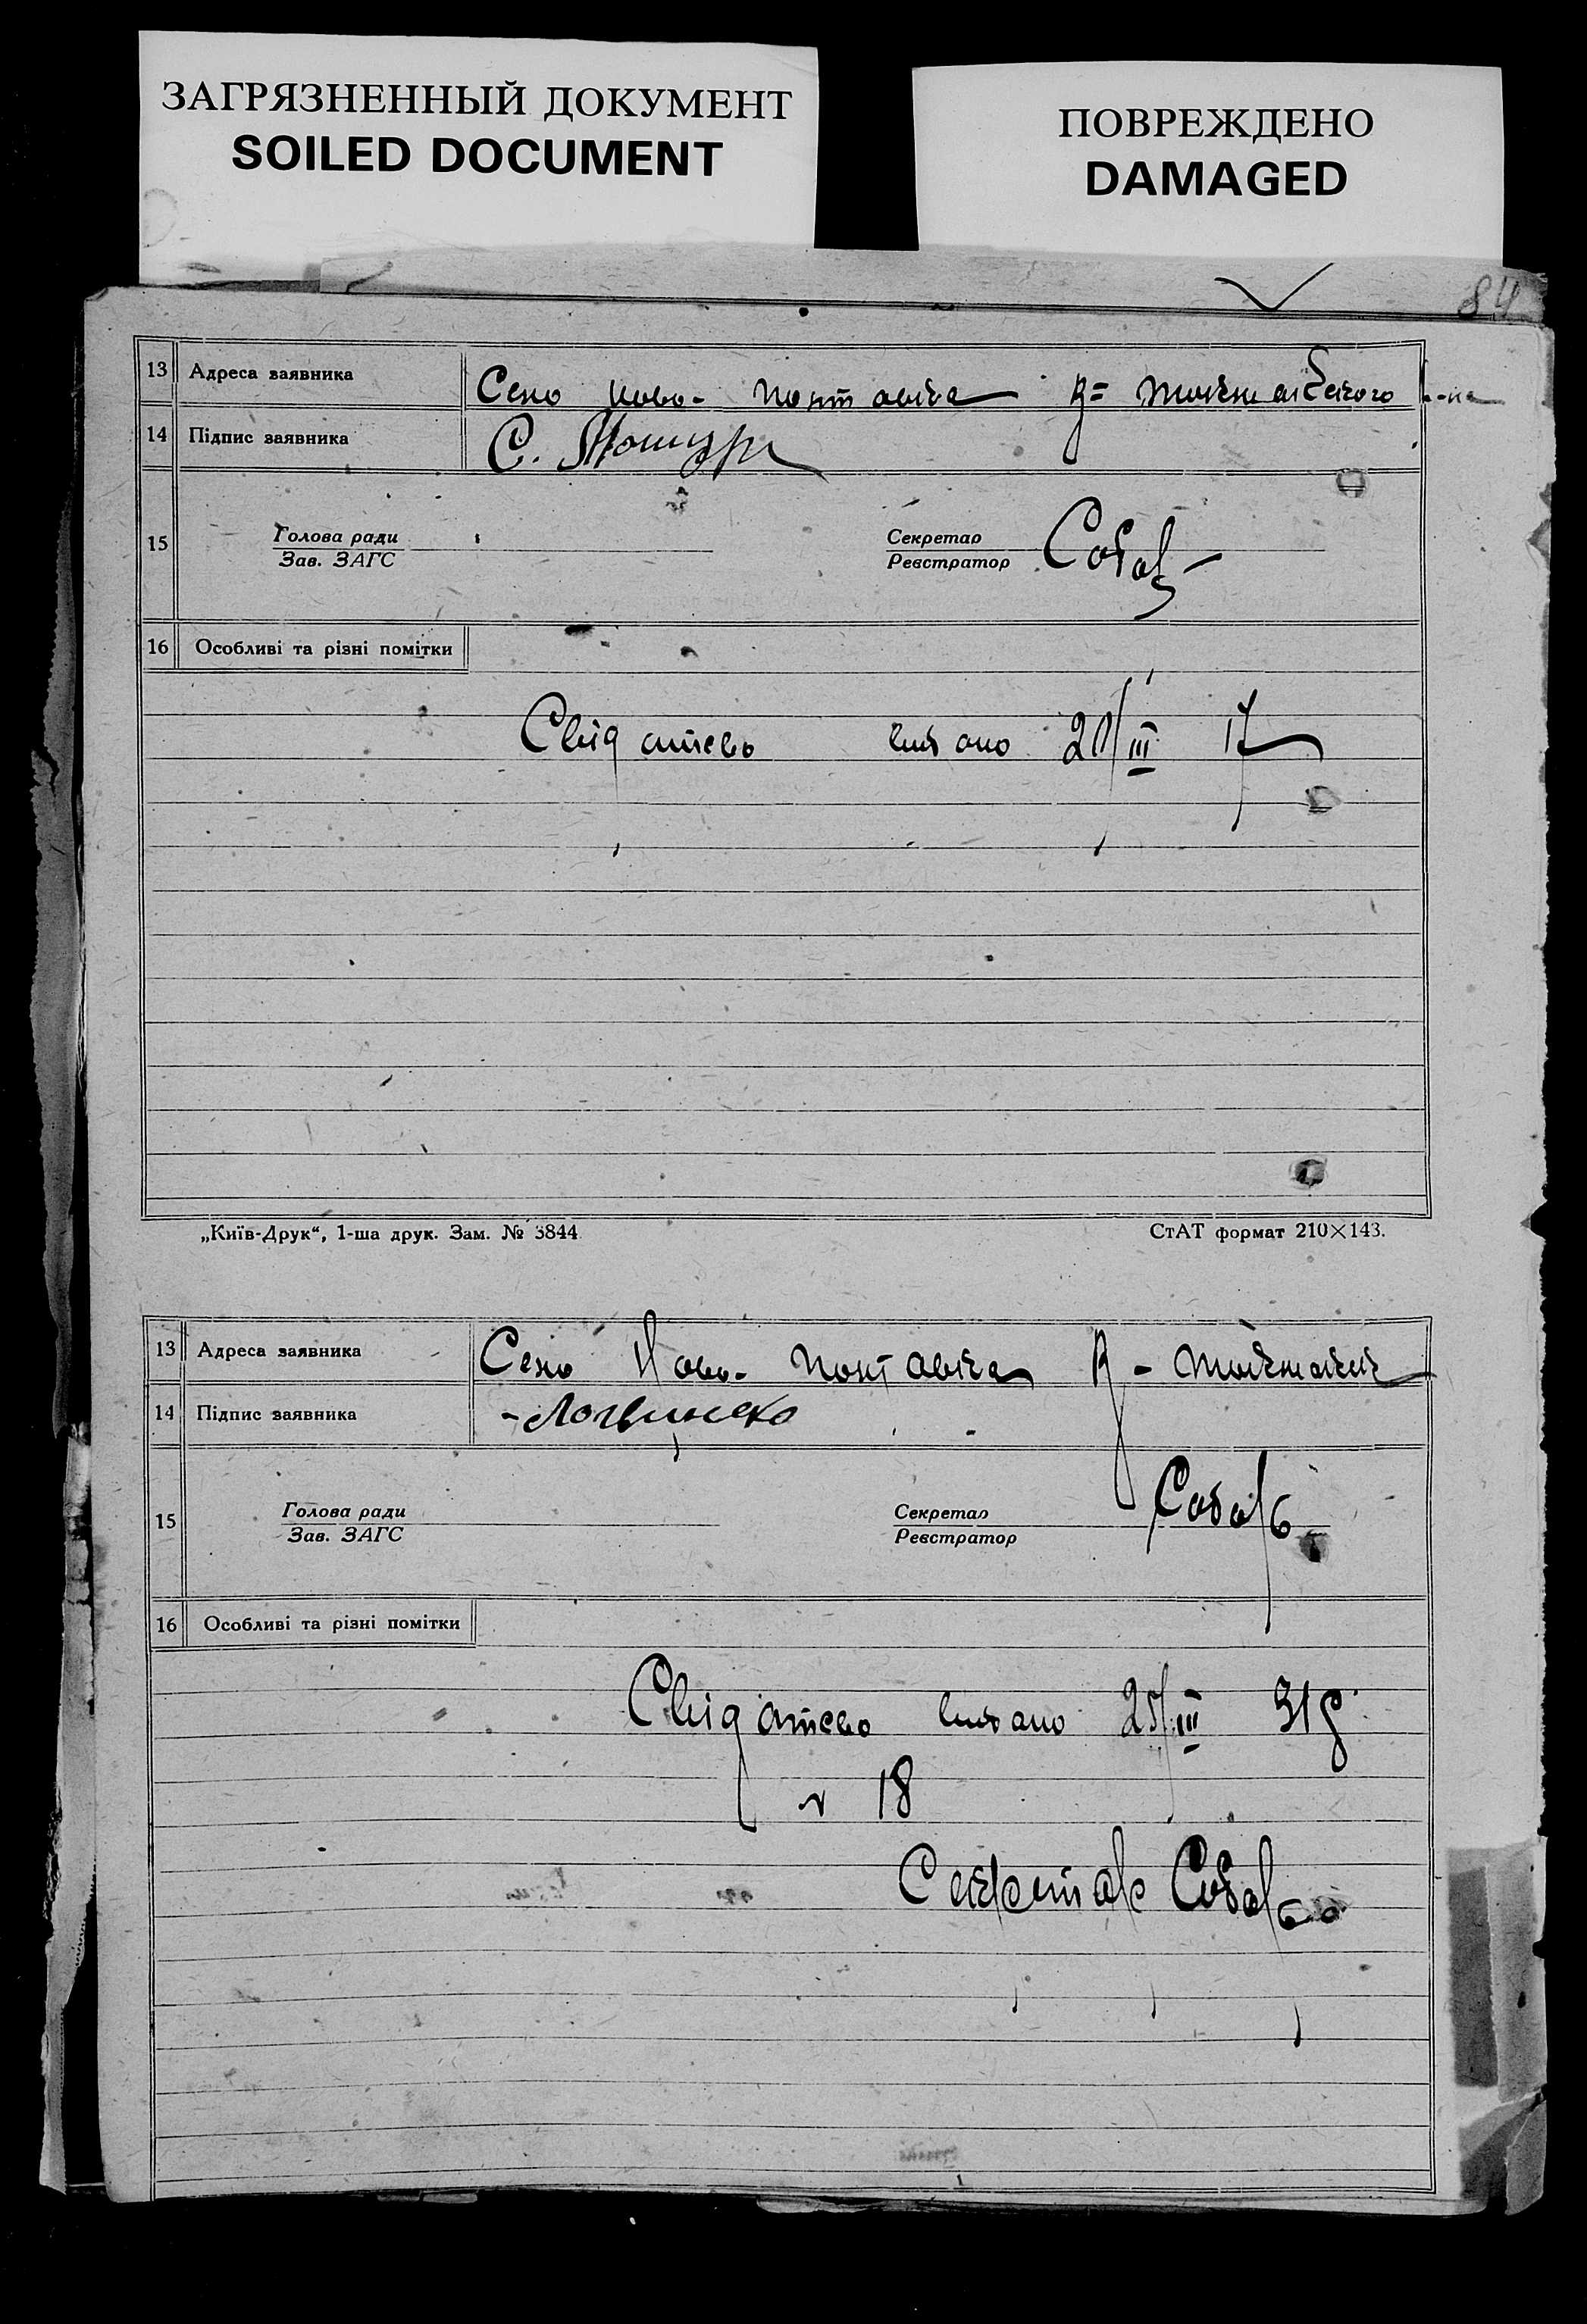 ЗАГРЯЗНЕННЫЙ ДОКУМЕНТ
SOILED DOCUMENT
ПОВРЕЖДЕНО
DAMAGED
84
13 Адреса заявника Село Ново-Полтавка
14 Підпис заявника С.
15 Голова ради Зав. ЗАГС Секретар Реєстратор
16 Особливі та різні помітки
Свідатсво видано 20/III 17
„Київ-Друк“, 1-ша друк. Зам. № 3844 СтАТ формат 210×143.
13 Адреса заявника Село Ново-Полтавка
14 Підпис заявника Логвиненко
15 Голова ради Зав. ЗАГС Секретар Реєстратор
16 Особливі та різні помітки
Свідатсво видано 25/III 31р
18
Секретар